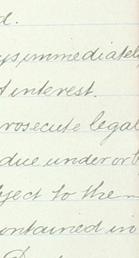 d.
ys immediately
t interest.
rosecute legal
due under or b
ject to the
ontained in